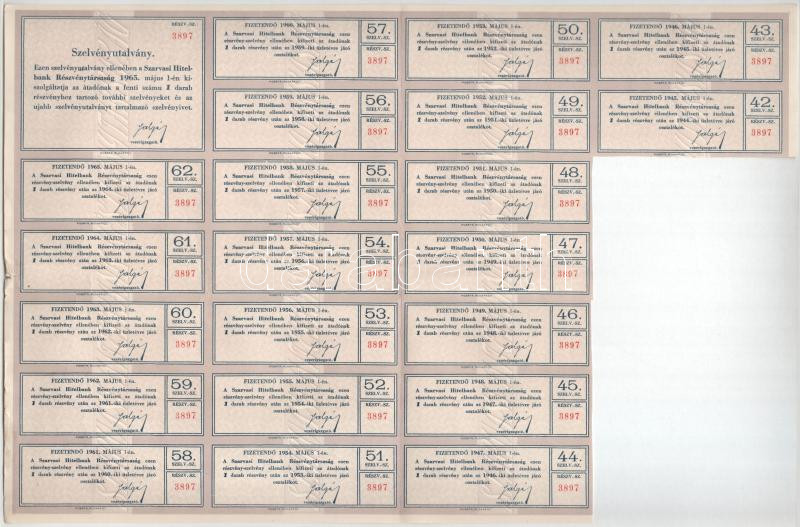 RÉSZV.-SZ.:
3897
Szelvényutalvány.
Ezen szelvényutalvány ellenében a Szarvasi Hitel-
bank Részvénytársaság 1965. május 1-én ki-
szolgáltatja az átadónak a fenti számu 1 darab
részvényhez tartozó további szelvényeket és az
ujabb szelvényutalványt tartalmazó szelvényívet.
vezérigazgató.
FIZETENDŐ 1965. MÁJUS 1-én.
A Szarvasi Hitelbank Részvénytársaság ezen
részvény-szelvény ellenében kifizeti az átadónak
1 darab részvény után az 1964-iki üzletévre járó
osztalékot.
vezérigazgató.
62.
SZELV.-SZ.
RÉSZV.-SZ.
3897
FIZETENDŐ 1964. MÁJUS 1-én.
A Szarvasi Hitelbank Részvénytársaság ezen
részvény-szelvény ellenében kifizeti az átadónak
1 darab részvény után az 1963-iki üzletévre járó
osztalékot.
vezérigazgató.
61.
SZELV.-SZ.
RÉSZV.-SZ.
3897
FIZETENDŐ 1963. MÁJUS 1-én.
A Szarvasi Hitelbank Részvénytársaság ezen
részvény-szelvény ellenében kifizeti az átadónak
1 darab részvény után az 1962-iki üzletévre járó
osztalékot.
vezérigazgató.
60.
SZELV.-SZ.
RÉSZV.-SZ.
3897
FIZETENDŐ 1962. MÁJUS 1-én.
A Szarvasi Hitelbank Részvénytársaság ezen
részvény-szelvény ellenében kifizeti az átadónak
1 darab részvény után az 1961-iki üzletévre járó
osztalékot.
vezérigazgató.
59.
SZELV.-SZ.
RÉSZV.-SZ.
3897
FIZETENDŐ 1961. MÁJUS 1-én.
A Szarvasi Hitelbank Részvénytársaság ezen
részvény-szelvény ellenében kifizeti az átadónak
1 darab részvény után az 1960-iki üzletévre járó
osztalékot.
vezérigazgató.
58.
SZELV.-SZ.
RÉSZV.-SZ.
3897
FIZETENDŐ 1960. MÁJUS 1-én.
A Szarvasi Hitelbank Részvénytársaság ezen
részvény-szelvény ellenében kifizeti az átadónak
1 darab részvény után az 1959-iki üzletévre járó
osztalékot.
vezérigazgató.
57.
SZELV.-SZ.
RÉSZV.-SZ.
3897
FIZETENDŐ 1959. MÁJUS 1-én.
A Szarvasi Hitelbank Részvénytársaság ezen
részvény-szelvény ellenében kifizeti az átadónak
1 darab részvény után az 1958-iki üzletévre járó
osztalékot.
vezérigazgató.
56.
SZELV.-SZ.
RÉSZV.-SZ.
3897
FIZETENDŐ 1958. MÁJUS 1-én.
A Szarvasi Hitelbank Részvénytársaság ezen
részvény-szelvény ellenében kifizeti az átadónak
1 darab részvény után az 1957-iki üzletévre járó
osztalékot.
vezérigazgató.
55.
SZELV.-SZ.
RÉSZV.-SZ.
3897
FIZETENDŐ 1957. MÁJUS 1-én.
A Szarvasi Hitelbank Részvénytársaság ezen
részvény-szelvény ellenében kifizeti az átadónak
1 darab részvény után az 1956-iki üzletévre járó
osztalékot.
vezérigazgató.
54.
SZELV.-SZ.
RÉSZV.-SZ.
3897
FIZETENDŐ 1956. MÁJUS 1-én.
A Szarvasi Hitelbank Részvénytársaság ezen
részvény-szelvény ellenében kifizeti az átadónak
1 darab részvény után az 1955-iki üzletévre járó
osztalékot.
vezérigazgató.
53.
SZELV.-SZ.
RÉSZV.-SZ.
3897
FIZETENDŐ 1955. MÁJUS 1-én.
A Szarvasi Hitelbank Részvénytársaság ezen
részvény-szelvény ellenében kifizeti az átadónak
1 darab részvény után az 1954-iki üzletévre járó
osztalékot.
vezérigazgató.
52.
SZELV.-SZ.
RÉSZV.-SZ.
3897
FIZETENDŐ 1954. MÁJUS 1-én.
A Szarvasi Hitelbank Részvénytársaság ezen
részvény-szelvény ellenében kifizeti az átadónak
1 darab részvény után az 1953-iki üzletévre járó
osztalékot.
vezérigazgató.
51.
SZELV.-SZ.
RÉSZV.-SZ.
3897
FIZETENDŐ 1953. MÁJUS 1-én.
A Szarvasi Hitelbank Részvénytársaság ezen
részvény-szelvény ellenében kifizeti az átadónak
1 darab részvény után az 1952-iki üzletévre járó
osztalékot.
vezérigazgató.
50.
SZELV.-SZ.
RÉSZV.-SZ.
3897
FIZETENDŐ 1952. MÁJUS 1-én.
A Szarvasi Hitelbank Részvénytársaság ezen
részvény-szelvény ellenében kifizeti az átadónak
1 darab részvény után az 1951-iki üzletévre járó
osztalékot.
vezérigazgató.
49.
SZELV.-SZ.
RÉSZV.-SZ.
3897
FIZETENDŐ 1951. MÁJUS 1-én.
A Szarvasi Hitelbank Részvénytársaság ezen
részvény-szelvény ellenében kifizeti az átadónak
1 darab részvény után az 1950-iki üzletévre járó
osztalékot.
vezérigazgató.
48.
SZELV.-SZ.
RÉSZV.-SZ.
3897
FIZETENDŐ 1950. MÁJUS 1-én.
A Szarvasi Hitelbank Részvénytársaság ezen
részvény-szelvény ellenében kifizeti az átadónak
1 darab részvény után az 1949-iki üzletévre járó
osztalékot.
vezérigazgató.
47.
SZELV.-SZ.
RÉSZV.-SZ.
3897
FIZETENDŐ 1949. MÁJUS 1-én.
A Szarvasi Hitelbank Részvénytársaság ezen
részvény-szelvény ellenében kifizeti az átadónak
1 darab részvény után az 1948-iki üzletévre járó
osztalékot.
vezérigazgató.
46.
SZELV.-SZ.
RÉSZV.-SZ.
3897
FIZETENDŐ 1948. MÁJUS 1-én.
A Szarvasi Hitelbank Részvénytársaság ezen
részvény-szelvény ellenében kifizeti az átadónak
1 darab részvény után az 1947-iki üzletévre járó
osztalékot.
vezérigazgató.
45.
SZELV.-SZ.
RÉSZV.-SZ.
3897
FIZETENDŐ 1947. MÁJUS 1-én.
A Szarvasi Hitelbank Részvénytársaság ezen
részvény-szelvény ellenében kifizeti az átadónak
1 darab részvény után az 1946-iki üzletévre járó
osztalékot.
vezérigazgató.
44.
SZELV.-SZ.
RÉSZV.-SZ.
3897
FIZETENDŐ 1946. MÁJUS 1-én.
A Szarvasi Hitelbank Részvénytársaság ezen
részvény-szelvény ellenében kifizeti az átadónak
1 darab részvény után az 1945-iki üzletévre járó
osztalékot.
vezérigazgató.
43.
SZELV.-SZ.
RÉSZV.-SZ.
3897
FIZETENDŐ 1945. MÁJUS 1-én.
A Szarvasi Hitelbank Részvénytársaság ezen
részvény-szelvény ellenében kifizeti az átadónak
1 darab részvény után az 1944-iki üzletévre járó
osztalékot.
vezérigazgató.
42.
SZELV.-SZ.
RÉSZV.-SZ.
3897